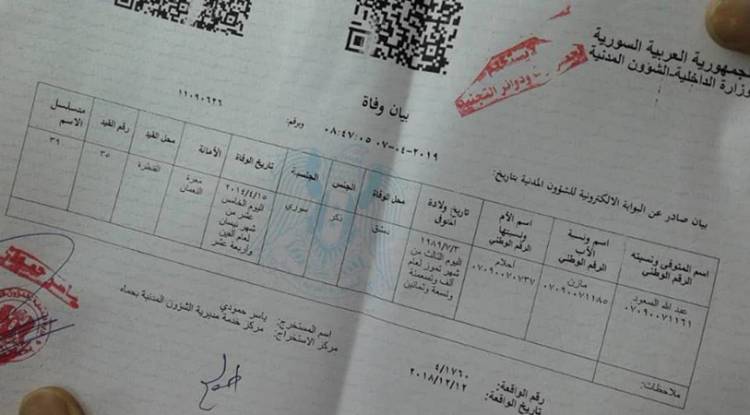 الجمهورية العربية السورية
وزارة الداخلية-الشؤون المدنية
ودوائر التجنيد
بيان وفاة
١١٠٩٠٦٢٦
وبرقم:
٠٨:٤٧:٠٥ ٠٧-٠٤-٢٠١٩
بيان صادر عن البوابة الالكترونية للشؤون المدنية بتاريخ:
اسم المتوفى ونسبته الرقم الوطني
اسم ونسبة الأب الرقم الوطني
اسم الأم ونسبتها الرقم الوطني
تاريخ ولادة المتوفى
محل الوفاة
الجنس
الجنسية
تاريخ الوفاة
الأمانة
محل القيد
رقم القيد
متسلسل الاسم
عبد الله السعود ٠٧٠٩٠٠٧١١٦١
مازن ٠٧٠٩٠٠٧١١٨٥
أحلام ٠٧٠٩٠٠٧٠٧٣٧
١٩٨٩/٧/٣ اليوم الثالث من شهر تموز لعام ألف وتسعمئة وتسعة وثمانين
دمشق
ذكر
سوري
٢٠١٤/٤/١٥ اليوم الخامس عشر من شهر نيسان لعام ألفين وأربعة عشر
معرة النعمان
٣٥
٣٩
ملاحظات:
رقم الواقعة: ٤/١٧٦٠
تاريخ الواقعة: ٢٠١٨/١٢/١٢
اسم المستخرج: ياسر حمودي
مركز الاستخراج: مركز خدمة مديرية الشؤون المدنية بحماه